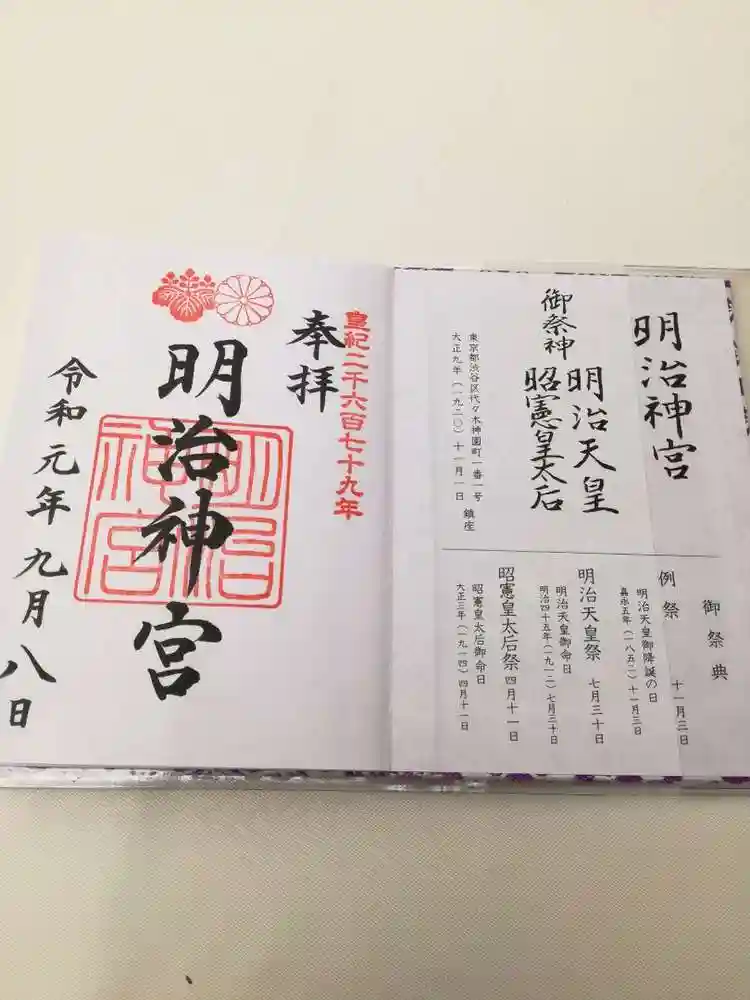 明治神宮
御祭神
明治天皇
昭憲皇太后
東京都渋谷区代々木神園町一番一号
大正九年(一九二〇)十一月一日 鎮座
御祭典
例祭 十一月三日
明治天皇御降誕の日
嘉永五年(一八五二)十一月三日
明治天皇祭 七月三十日
明治天皇御命日
明治四十五年(一九一二)七月三十日
昭憲皇太后祭 四月十一日
昭憲皇太后御命日
大正三年(一九一四)四月十一日
皇紀二千六百七十九年
奉拝
明治神宮
明治神宮
令和元年九月八日